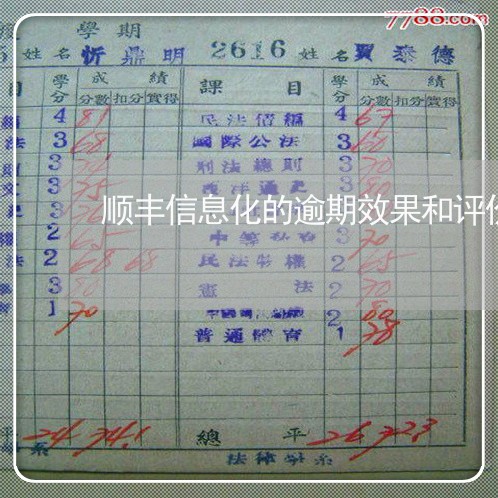 7788.com
學期
姓名 忻鼎明 2616 姓名 賈泰德
目 學分 成績 課目 學分 成績
分數 扣分 實得 分數 扣分 實得
4 81 民法債編 4 67
法 3 68 國際公法 3 60
3 刑法總則 3 70
3 75 西洋通史 3 80
顺丰信息化的逾期效果和评价
2 65 3 70
法 2 68 68 民法物權 2 65
3 80 憲法 2 70
1 70 2 80
普通體育 1 78
平 24 74.1 總平 26 72.3
系 法律學系